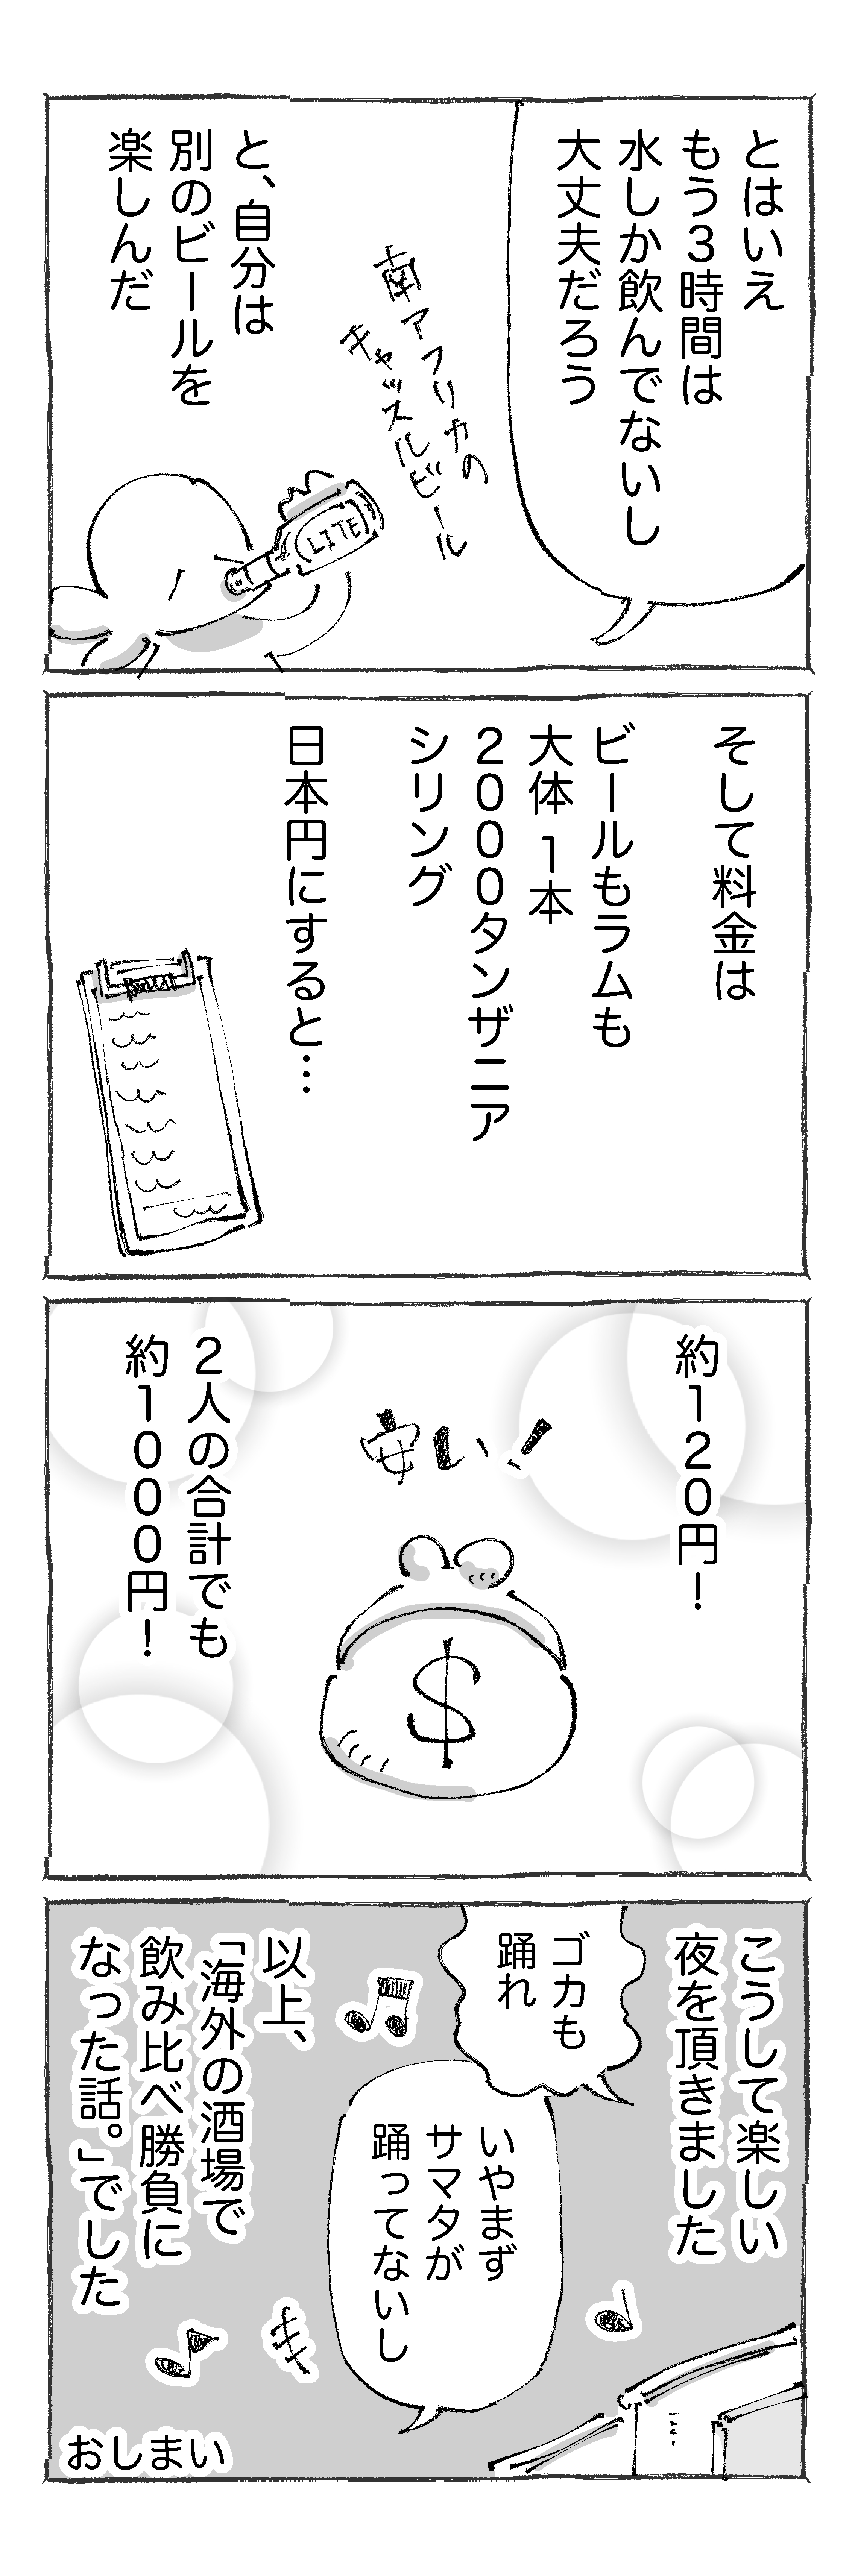 とはいえ
もう3時間は
水しか飲んでないし
大丈夫だろう
南アフリカの
キャッスルビール
LITE
と、自分は
別のビールを
楽しんだ
そして料金は
ビールもラムも
大体1本
2000タンザニア
シリング
日本円にすると…
約120円!
安い!
$
2人の合計でも
約1000円!
こうして楽しい
夜を頂きました
ゴカも
踊れ
いやまず
サマタが
踊ってないし
以上、
「海外の酒場で
飲み比べ勝負に
なった話。」でした
おしまい